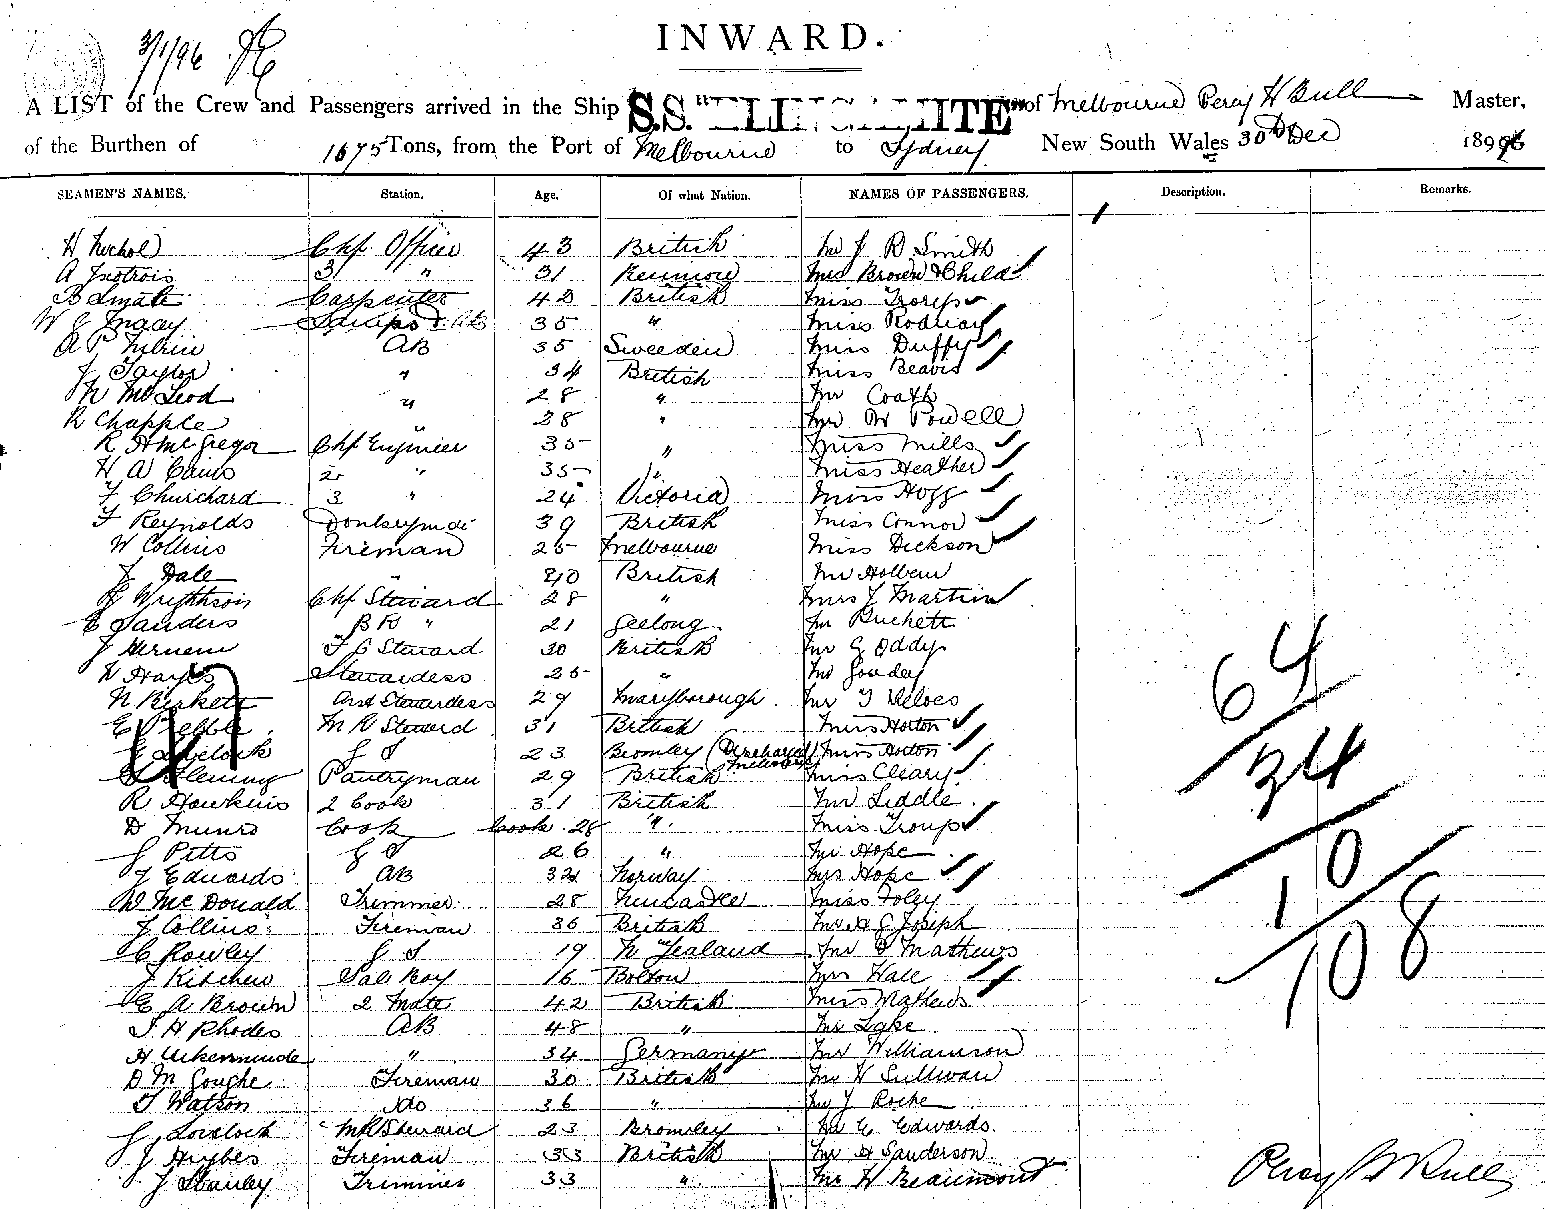 INWARD.
3/1/96
A LIST of the Crew and Passengers arrived in the Ship S.S. of Melbourne Percy H Bull Master,
of the Burthen of 1675 Tons, from the Port of Melbourne to Sydney New South Wales 30th Dec 189
SEAMEN'S NAMES. Station. Age. Of what Nation. NAMES OF PASSENGERS. Description. Remarks.
H Nichol Chf Officer 43 British Mr J R Smith
A 3 " 31 Mrs Brown & Child
Carpenter 43 British Miss
W J & AB 35 " Miss
A P AB 35 Sweeden Miss Duffy
J Taylor " 34 British Miss Beavis
N McLeod " 28 " Mr Coath
R Chapple " 28 " Mr W Powell
R H McGregor Chf Engineer 35 " Miss Mills
H A 2 " 35 " Miss Heather
F Churchard 3 " 24 Victoria Miss Hogg
F Reynolds 39 British Miss Connor
W Collins Fireman 25 Melbourne Miss Dickson
J Dale " 40 British Mr
Wrightson Chf Steward 28 " Mrs J Martin
E Sanders " 21 Geelong Mr
J Steward 30 British Mr G Oddy
Hayes Stewardess 25 " Mr
N Asst Stewardess 29 Maryborough Mr
E Prebble Steward 31 British Miss Horton
Lovelock G S 23 Bromley (Discharged Melbourne) Miss Horton
Fleming Pantryman 29 British Miss Cleary
R Hawkins 2 Cook 31 British Mr Liddle
D Munro Cook Cook 28 " Miss Troup
J Pitts G S 26 " Mr Hope
J Edwards AB 32 Norway Mrs Hope
W McDonald Trimmer 28 Newcastle Miss Foley
J Collins Fireman 36 British Joseph
C Rowley G S 19 N Zealand Mr Mathews
J Kitchen Boy 16 Bolton Mrs Hall
E A Brown 2 Mate 42 British Miss Mathews
T H Rhodes AB 48 " Mr Lake
H " 34 Germany Mr Williamson
D M Goughe Fireman 30 British Mr H Sullivan
T Watson do 36 " Mr J Roche
J Lovelock Steward 23 Bromley Mr E Edwards
J Hughes Fireman 33 British Mr H Sanderson
J Stanley Trimmer 33 " Mr H Beaumont
64
34
10
108
Percy H Bull